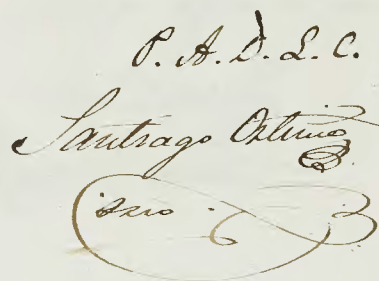 P. A. D. L. C.
Santiago Ortuño
Srio